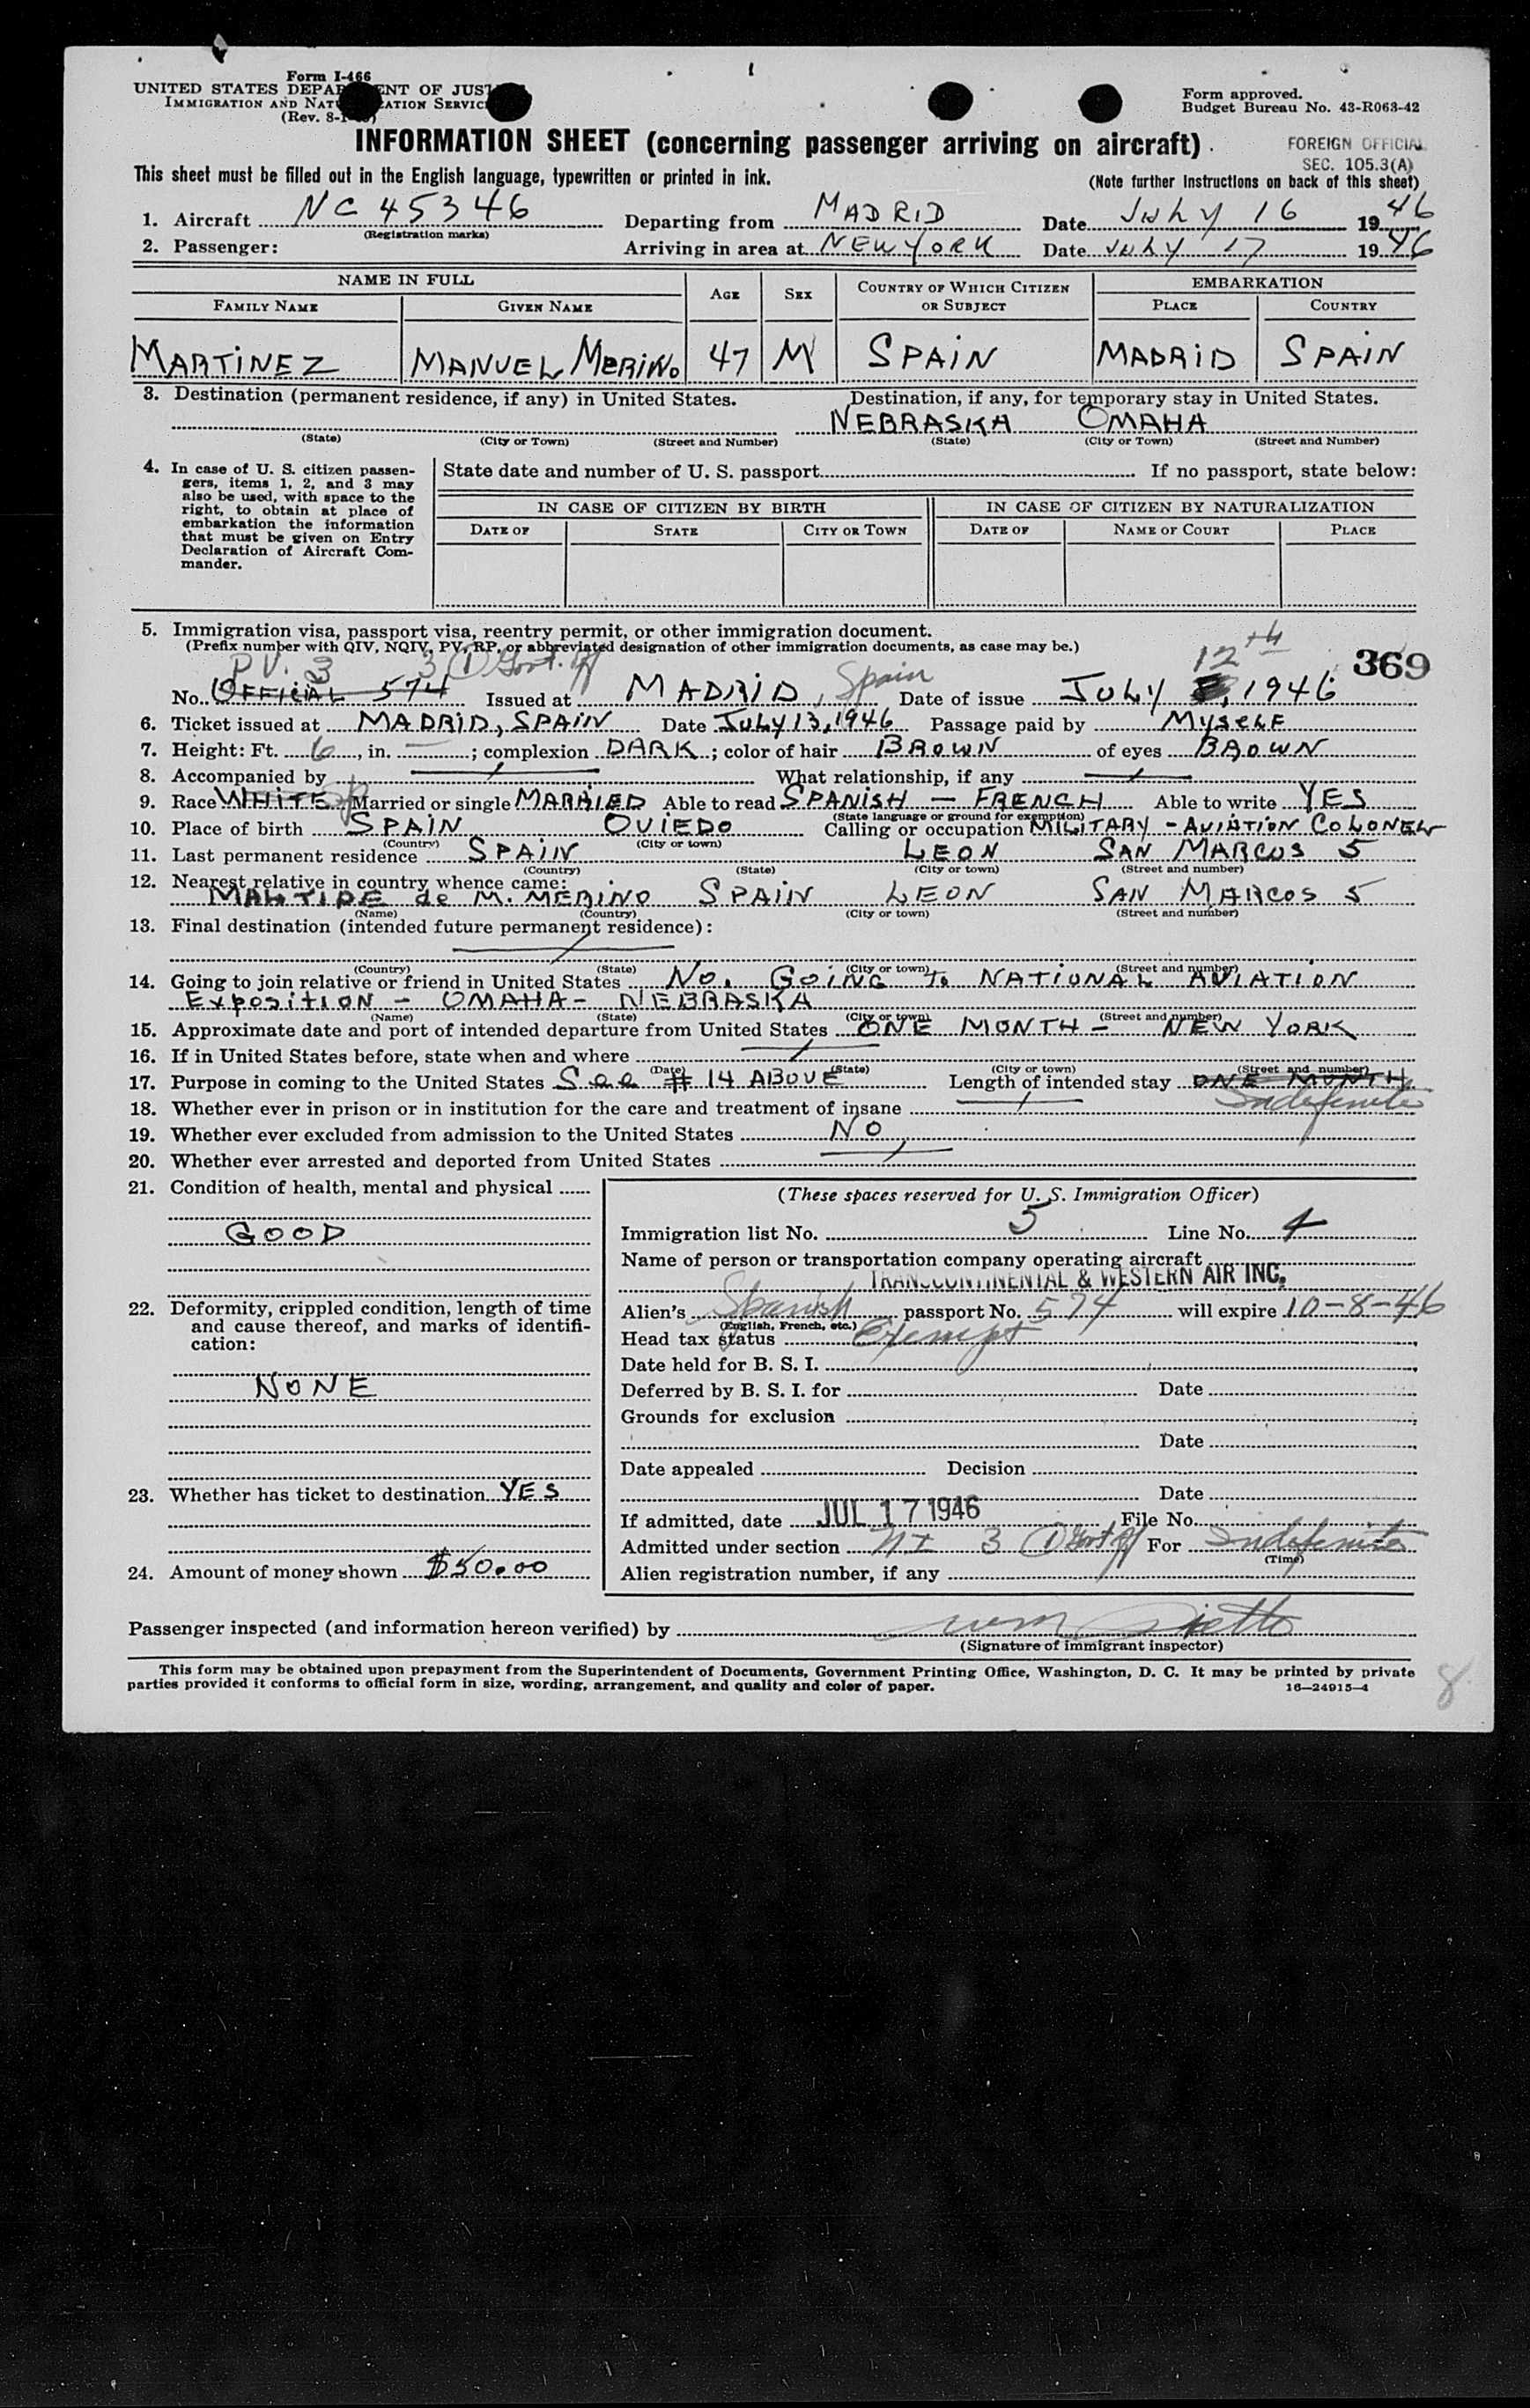 Form I-466
UNITED STATES DEPARTMENT OF JUSTICE
IMMIGRATION AND NATURALIZATION SERVICE
(Rev. 8-1-
Form approved.
Budget Bureau No. 43-R063-42
INFORMATION SHEET (concerning passenger arriving on aircraft)
FOREIGN OFFICIAL
SEC. 105.3(A)
This sheet must be filled out in the English language, typewritten or printed in ink.
(Note further instructions on back of this sheet)
1. Aircraft NC 45346 Departing from MADRID Date JULY 16 1946
(Registration marks)
2. Passenger: Arriving in area at NEW YORK Date JULY 17 1946
NAME IN FULL AGE SEX COUNTRY OF WHICH CITIZEN OR SUBJECT EMBARKATION
FAMILY NAME GIVEN NAME PLACE COUNTRY
MARTINEZ MANUEL MERINO 47 M SPAIN MADRID SPAIN
3. Destination (permanent residence, if any) in United States. Destination, if any, for temporary stay in United States.
NEBRASKA OMAHA
(State) (City or Town) (Street and Number) (State) (City or Town) (Street and Number)
4. In case of U. S. citizen passen-
gers, items 1, 2, and 3 may
also be used, with space to the
right, to obtain at place of
embarkation the information
that must be given on Entry
Declaration of Aircraft Com-
mander.
State date and number of U. S. passport If no passport, state below:
IN CASE OF CITIZEN BY BIRTH IN CASE OF CITIZEN BY NATURALIZATION
DATE OF STATE CITY OR TOWN DATE OF NAME OF COURT PLACE
5. Immigration visa, passport visa, reentry permit, or other immigration document.
(Prefix number with QIV, NQIV, PV, RP, or abbreviated designation of other immigration documents, as case may be.)
PV. 3 3 (1) Govt. Off Spain 12th 369
No. OFFICIAL 574 Issued at MADRID, Date of issue JULY , 1946
6. Ticket issued at MADRID, SPAIN Date JULY 13, 1946 Passage paid by MYSELF
7. Height: Ft. 6, in. —; complexion DARK; color of hair BROWN of eyes BROWN
8. Accompanied by What relationship, if any
9. Race WHITE Sp Married or single MARRIED Able to read SPANISH — FRENCH Able to write YES
(State language or ground for exemption)
10. Place of birth SPAIN OVIEDO Calling or occupation MILITARY - AVIATION COLONEL
(Country) (City or town)
11. Last permanent residence SPAIN LEON SAN MARCOS 5
(Country) (State) (City or town) (Street and number)
12. Nearest relative in country whence came:
MALTIDE de M. MERINO SPAIN LEON SAN MARCOS 5
(Name) (Country) (City or town) (Street and number)
13. Final destination (intended future permanent residence):
(Country) (State) (City or town) (Street and number)
14. Going to join relative or friend in United States NO. GOING TO NATIONAL AVIATION
EXPOSITION - OMAHA - NEBRASKA
(Name) (State) (City or town) (Street and number)
15. Approximate date and port of intended departure from United States ONE MONTH - NEW YORK
16. If in United States before, state when and where
(Date) (State) (City or town) (Street and number)
17. Purpose in coming to the United States See # 14 ABOVE Length of intended stay ONE MONTH
Indefinite
18. Whether ever in prison or in institution for the care and treatment of insane
19. Whether ever excluded from admission to the United States NO
20. Whether ever arrested and deported from United States
21. Condition of health, mental and physical
GOOD
22. Deformity, crippled condition, length of time
and cause thereof, and marks of identifi-
cation:
NONE
23. Whether has ticket to destination YES
24. Amount of money shown $50.00
(These spaces reserved for U. S. Immigration Officer)
Immigration list No. 5 Line No. 4
Name of person or transportation company operating aircraft
TRANSCONTINENTAL & WESTERN AIR INC.
Alien's Spanish passport No. 574 will expire 10-8-46
(English, French, etc.)
Head tax status Exempt
Date held for B. S. I.
Deferred by B. S. I. for Date
Grounds for exclusion
Date
Date appealed Decision
Date
If admitted, date JUL 17 1946 File No.
Admitted under section NI 3 (1) Govt Off For Indefinite
(Time)
Alien registration number, if any
Passenger inspected (and information hereon verified) by
(Signature of immigrant inspector)
This form may be obtained upon prepayment from the Superintendent of Documents, Government Printing Office, Washington, D. C. It may be printed by private
parties provided it conforms to official form in size, wording, arrangement, and quality and color of paper.
16—24915-4
8